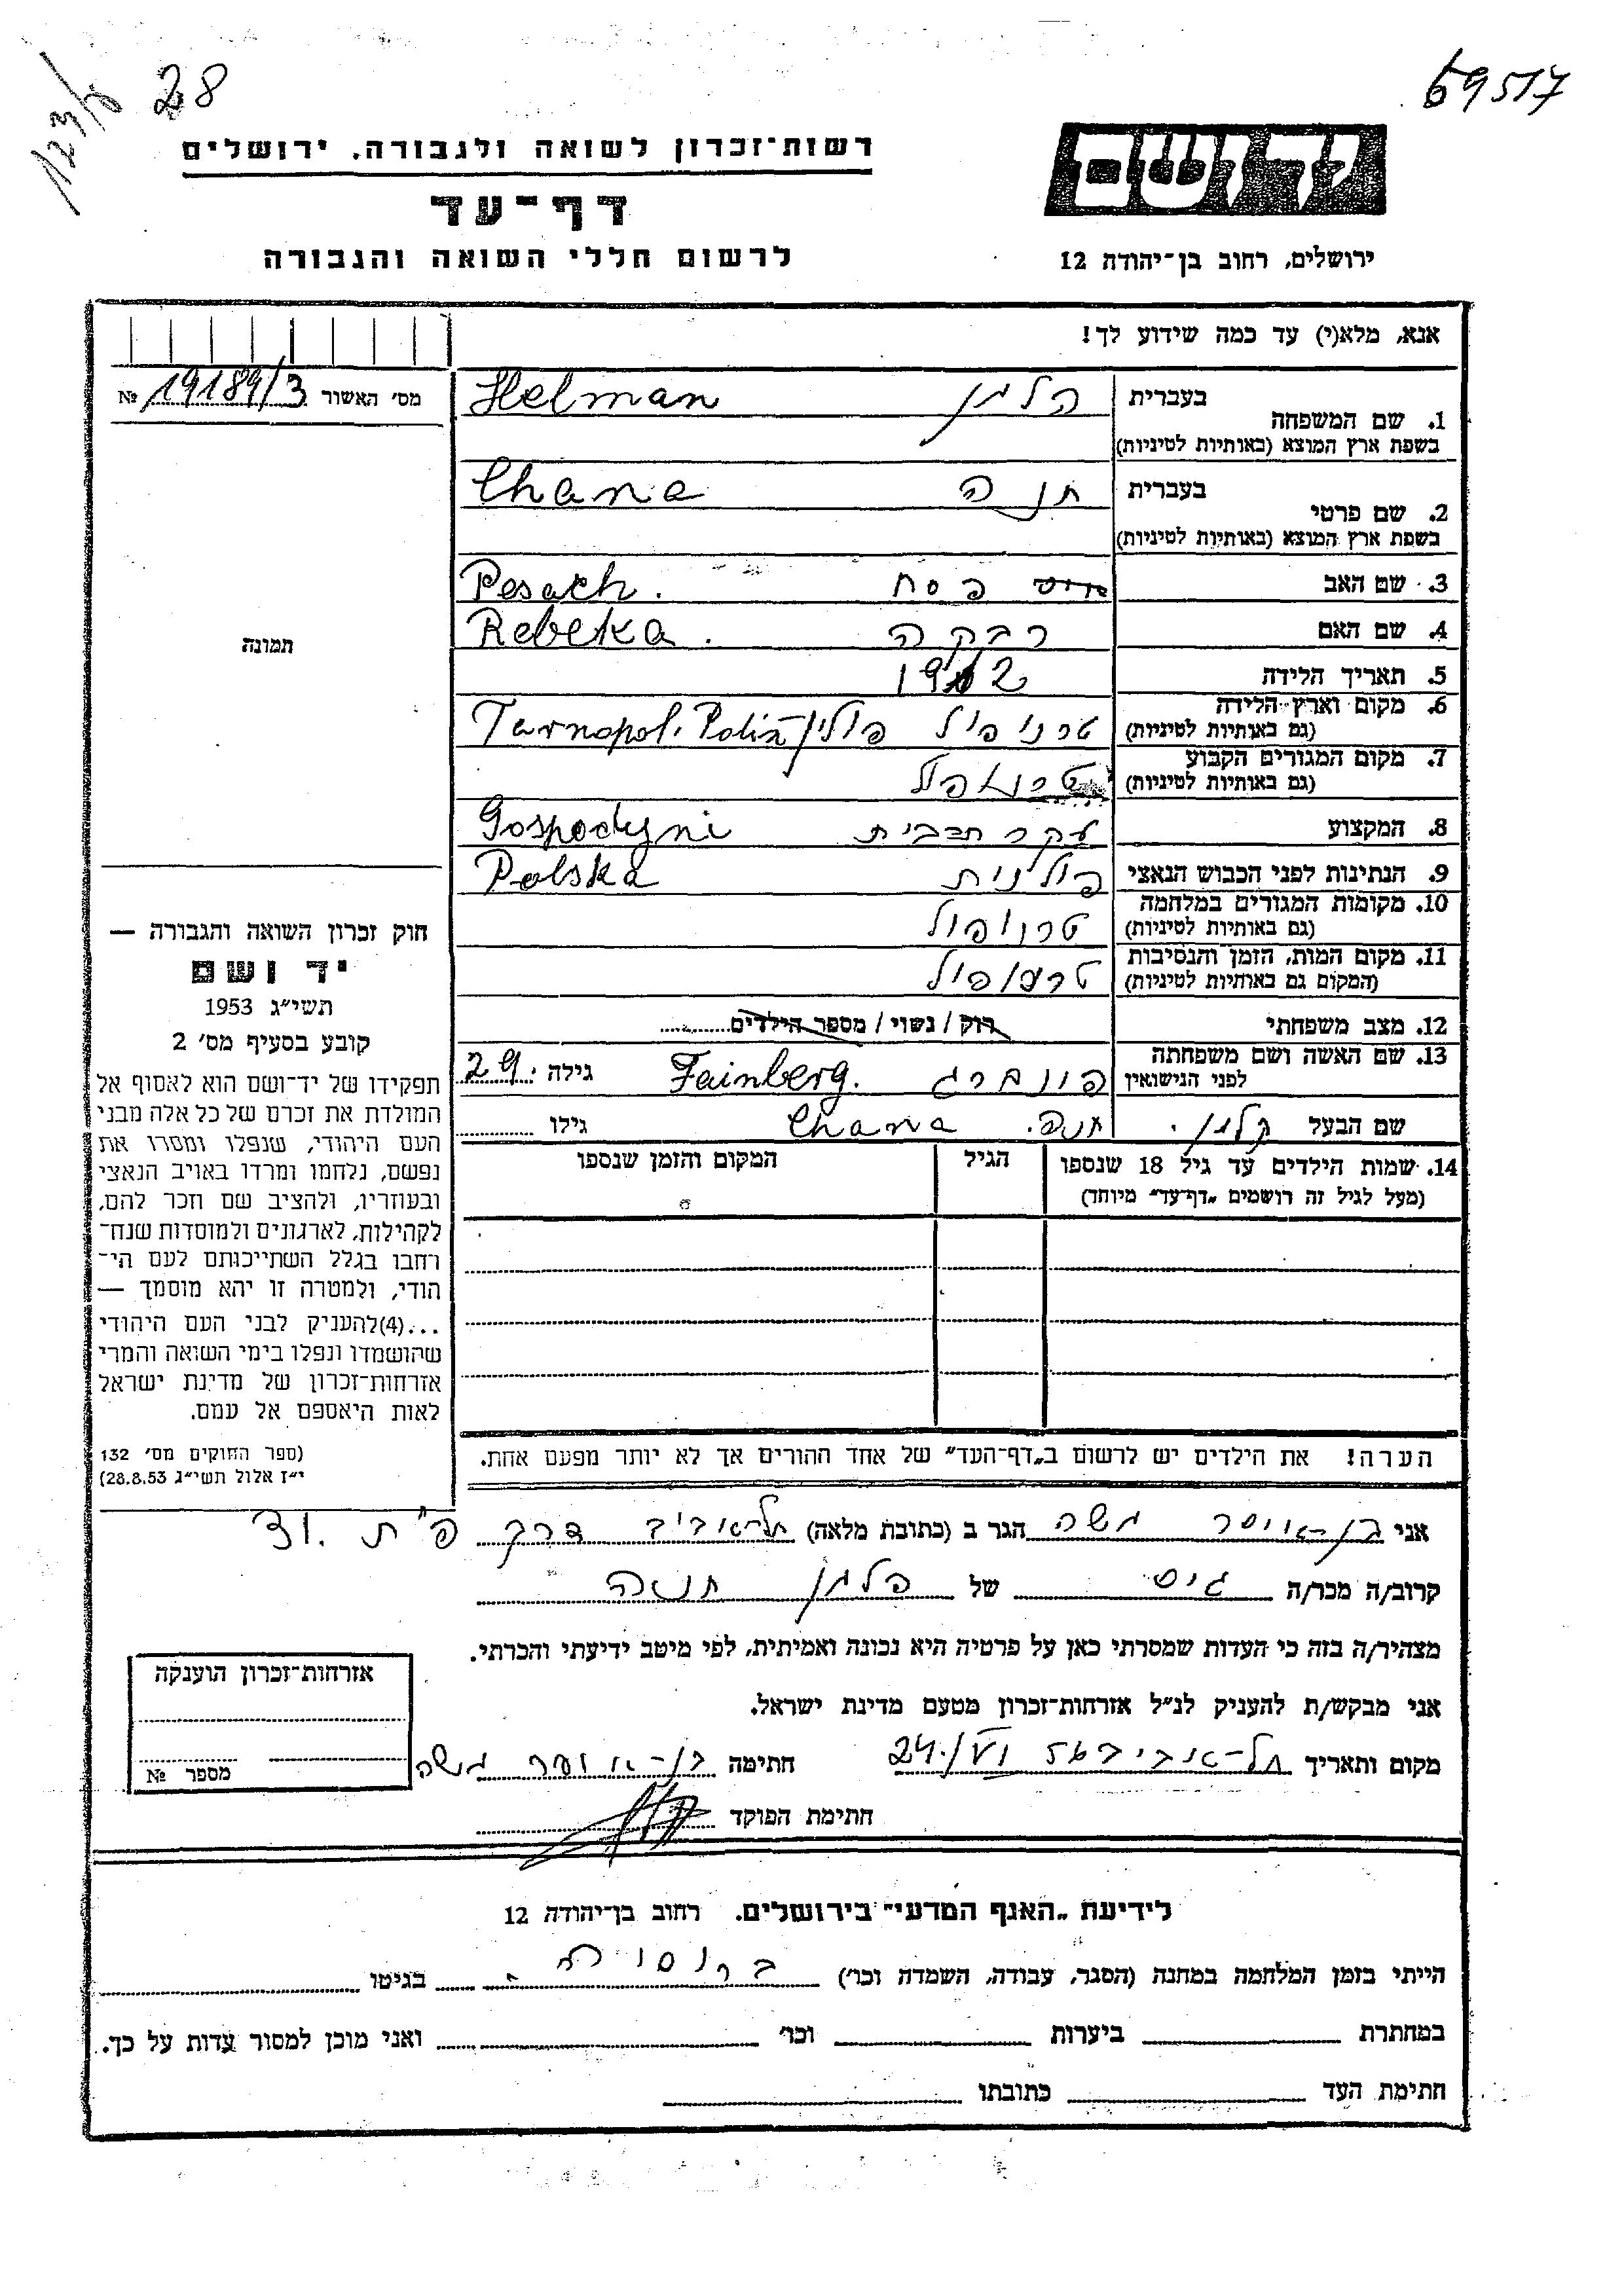 28
123/ע
69517
רשות־זכרון לשואה ולגבורה, ירושלים
דף־עד
לרשום חללי השואה והגבורה
יד ושם
ירושלים, רחוב בן־יהודה 12
אנא, מלא(י) עד כמה שידוע לך!
מס' האשור 19189/3 №
תמונה
בעברית הלמן Helman
1. שם המשפחה
בשפת ארץ המוצא (באותיות לטיניות)
בעברית חנה Chana
2. שם פרטי
בשפת ארץ המוצא (באותיות לטיניות)
3. שם האב פסח Pesach.
4. שם האם רבקה Rebeka.
5. תאריך הלידה 1912
6. מקום וארץ הלידה
(גם באותיות לטיניות) טרנופיל פולין Tarnopol. Polska
7. מקום המגורים הקבוע
(גם באותיות לטיניות) טרנופל
8. המקצוע עקרת בית Gospodyni
9. הנתינות לפני הכבוש הנאצי פולנית Polska
10. מקומות המגורים במלחמה
(גם באותיות לטיניות) טרנופול
11. מקום המות, הזמן והנסיבות
(המקום גם באותיות לטיניות) טרנופול
12. מצב משפחתי רוק / נשוי / מספר הילדים
13. שם האשה ושם משפחתה
לפני הנישואין פינברג Fainberg. גילה 29.
שם הבעל הלמן. חנה. Chana גילו
14. שמות הילדים עד גיל 18 שנספו
(מעל לגיל זה רושמים „דף־עד” מיוחד)
הגיל
המקום והזמן שנספו
הערה! את הילדים יש לרשום ב„דף־העד” של אחד ההורים אך לא יותר מפעם אחת.
חוק זכרון השואה והגבורה —
יד ושם
תשי״ג 1953
קובע בסעיף מס' 2
תפקידו של יד־ושם הוא לאסוף אל
המולדת את זכרם של כל אלה מבני
העם היהודי, שנפלו ומסרו את
נפשם, נלחמו ומרדו באויב הנאצי
ובעוזריו, ולהציב שם וזכר להם,
לקהילות, לארגונים ולמוסדות שנח־
רחבו בגלל השתייכותם לעם הי־
הודי, ולמטרה זו יהא מוסמך —
...(4)להעניק לבני העם היהודי
שהושמדו ונפלו בימי השואה והמרי
אזרחות־זכרון של מדינת ישראל
לאות היאספם אל עמם.
(ספר החוקים מס' 132
י״ז אלול תשי״ג 28.8.53)
אני בן־אויסר משה הגר ב (כתובת מלאה) תל־אביב דרך פ״ת 31.
קרוב/ה מכר/ה גיס של הלמן חנה
מצהיר/ה בזה כי העדות שמסרתי כאן על פרטיה היא נכונה ואמיתית, לפי מיטב ידיעתי והכרתי.
אני מבקש/ת להעניק לנ״ל אזרחות־זכרון מטעם מדינת ישראל.
מקום ותאריך תל־אביב 24./VI 56 חתימה בן־אויסר משה
חתימת הפוקד
אזרחות־זכרון הוענקה
מספר №
לידיעת „האגף המדעי” בירושלים. רחוב בן־יהודה 12
הייתי בזמן המלחמה במחנה (הסגר, עבודה, השמדה וכו') ברוסיה. בגיטו
במחתרת ביערות וכו' ואני מוכן למסור עדות על כך.
חתימת העד כתובתו